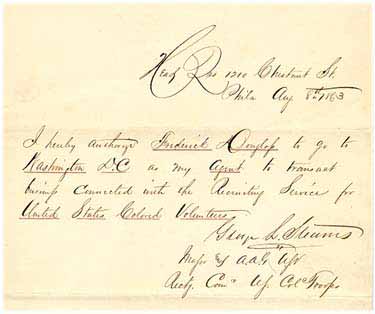 Head Qrs 1210 Chestnut St.
Phila Aug 8th 1863
I hereby authorize Frederick Douglass to go to
Washington D.C as my Agent to transact
business connected with the Recruiting Service for
United States Colored Volunteers
George L. Stearns
Major & A.A.G USV
Rectg. Comr US. Cold Troops